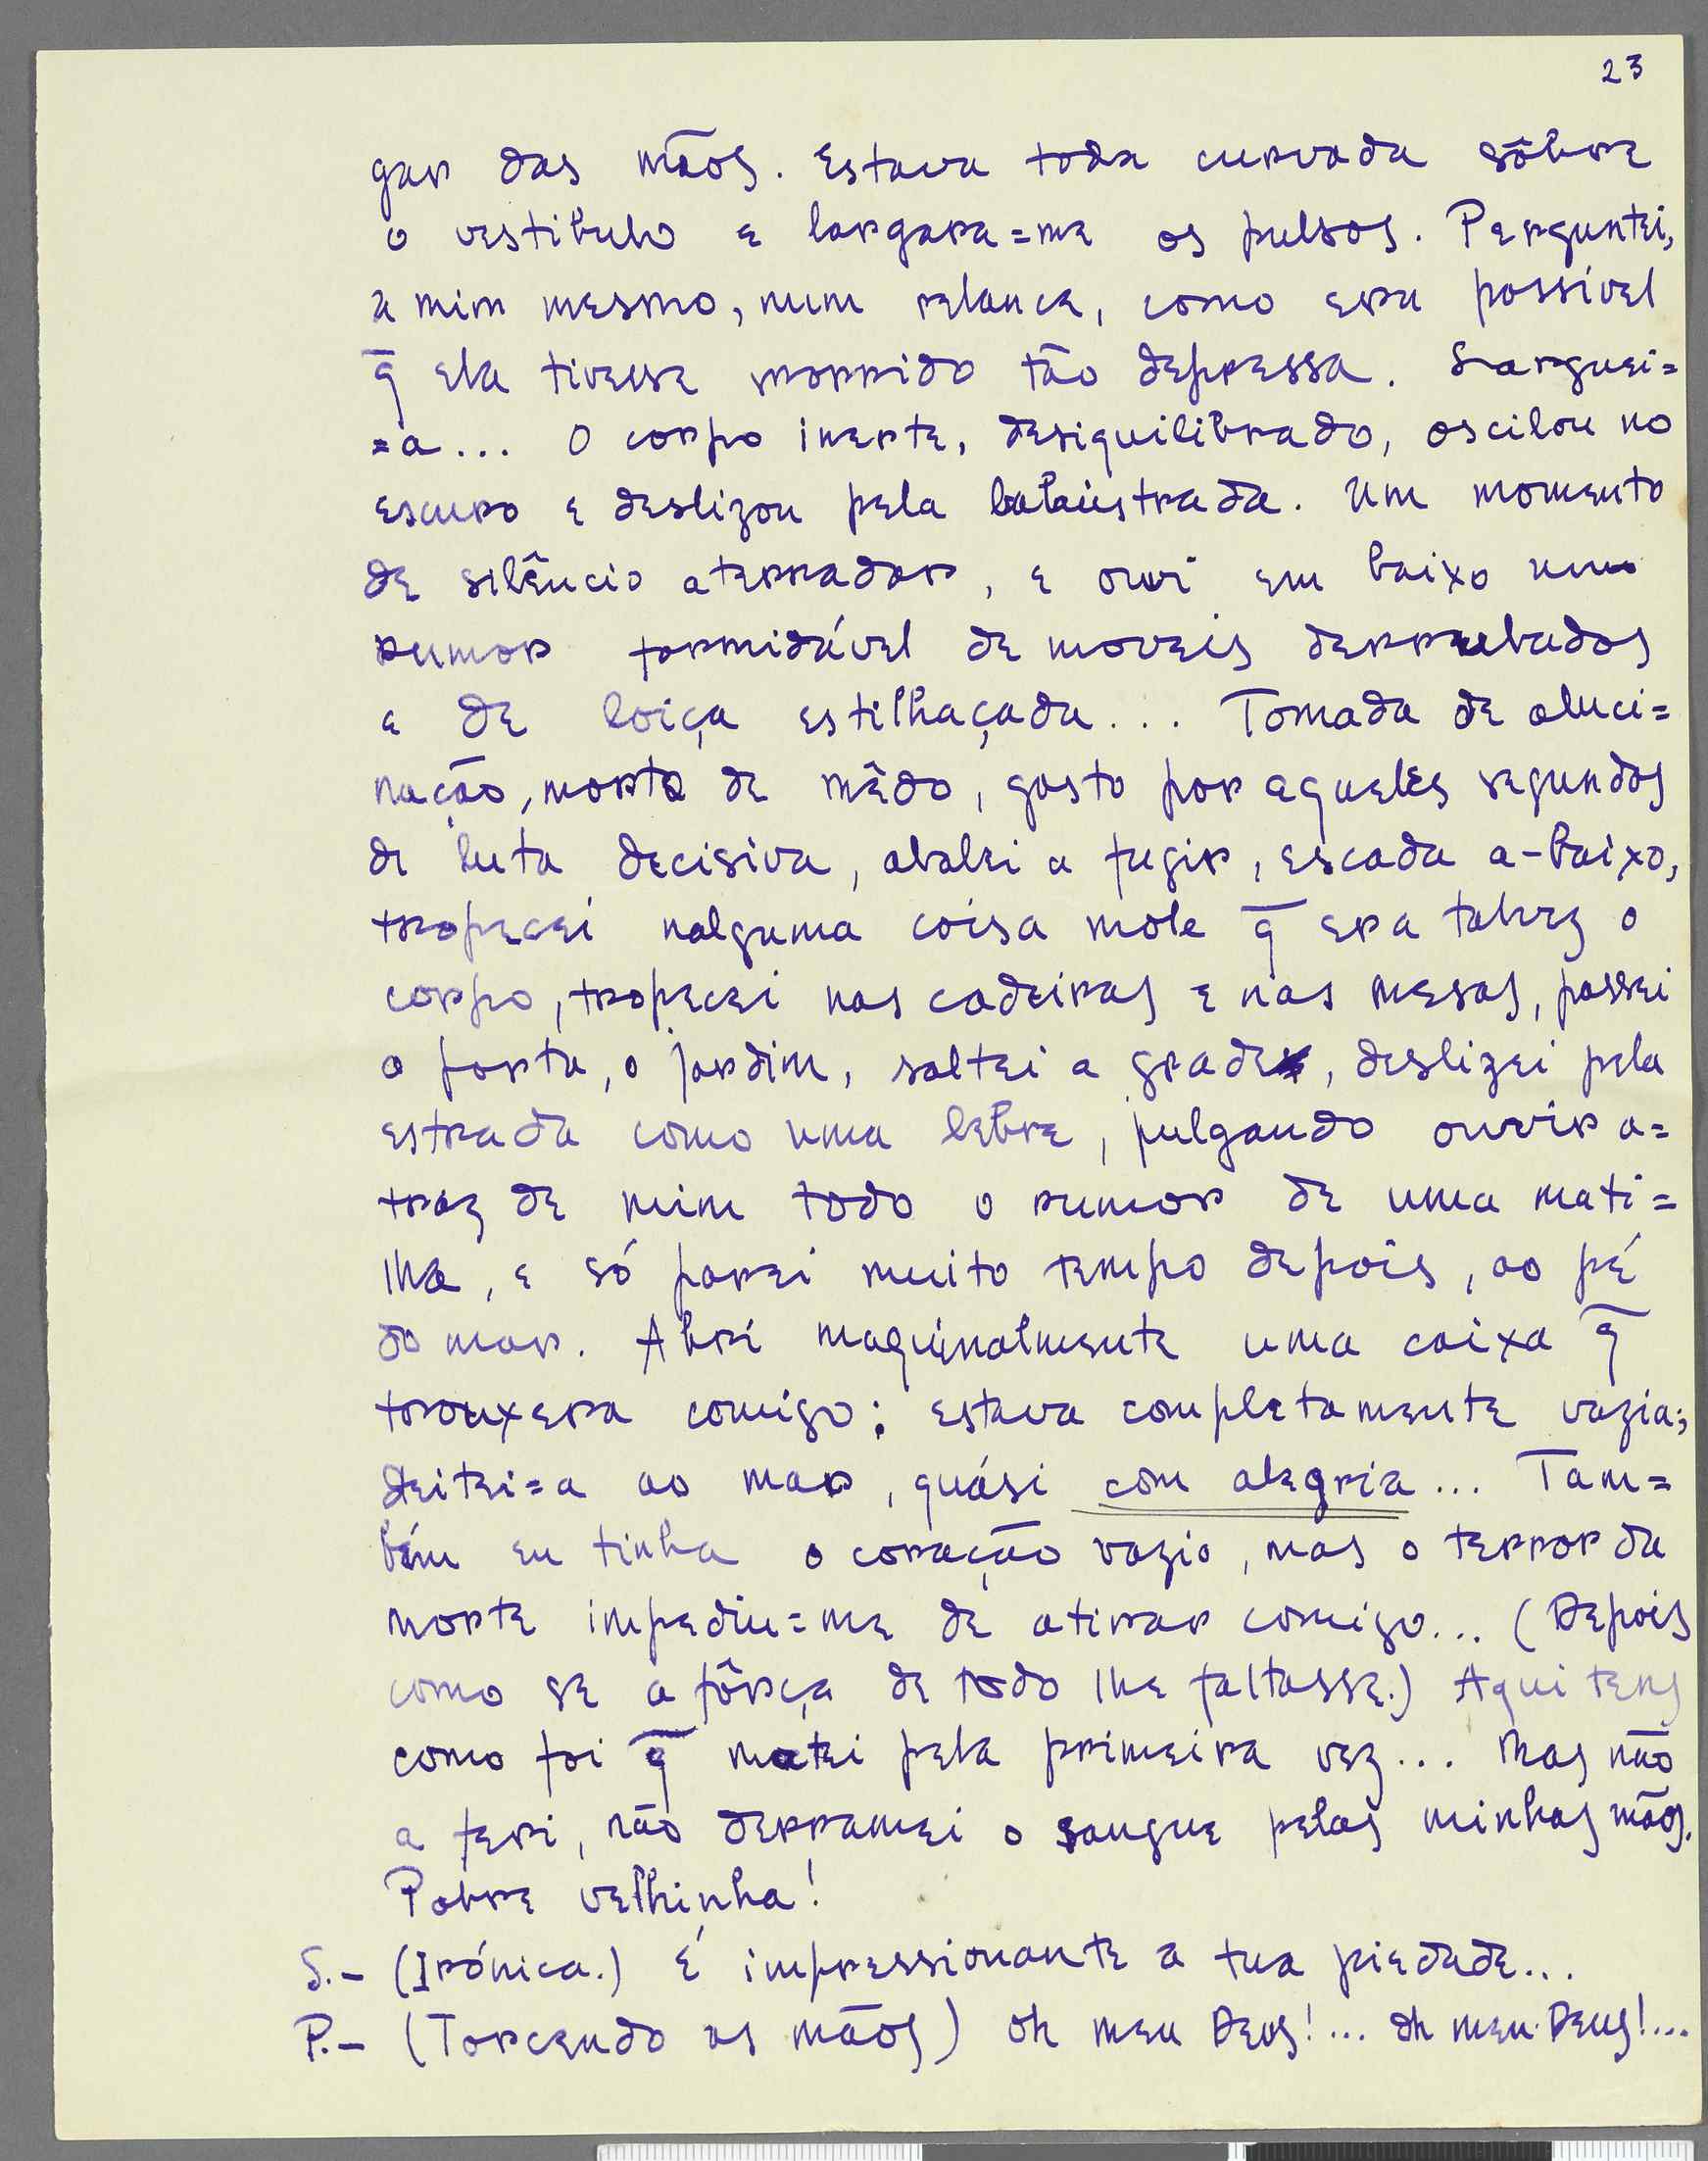 23
gar das mãos. Estava toda curvada sôbre
o vestibulo e largara=me os pulsos. Perguntei,
a mim mesmo, num relance, como era possível
q̄ ela tivesse morrido tão depressa. Larguei=
=a... O corpo inerte, desiquilibrado, oscilou no
escuro e deslizou pela balaústrada. Um momento
de silêncio aterrador, e ouvi em baixo um
rumor formidável de moveis derrubados
e de loiça estilhaçada... Tomada de aluci=
nação, morto de mêdo, gasto por aqueles segundos
de luta decisiva, abalei a fugir, escada a-baixo,
tropecei nalguma coisa mole q̄ era talvez o
corpo, tropecei nas cadeiras e nas mesas, passei
a porta, o jardim, saltei a grade, deslizei pela
estrada como uma lebre, julgando ouvir a=
traz de mim todo o rumor de uma mati=
lha, e só parei muito tempo depois, ao pé
do mar. Abri maquinalmente uma caixa q̄
trouxera comigo: estava completamente vazia;
deitei=a ao mar, quási com alegria... Tam=
bém eu tinha o coração vazio, mas o terror da
morte impediu=me de atirar comigo... (Depois
como se a fôrça de todo lhe faltasse.) Aqui tens
como foi q̄ matei pela primeira vez... Mas não
a feri, não derramei o sangue pelas minhas mãos.
Pobre velhinha!
S.- (Irónica.) É impressionante a tua piedade...
P.- (Torcendo as mãos) Oh meu Deus!... Oh meu Deus!...